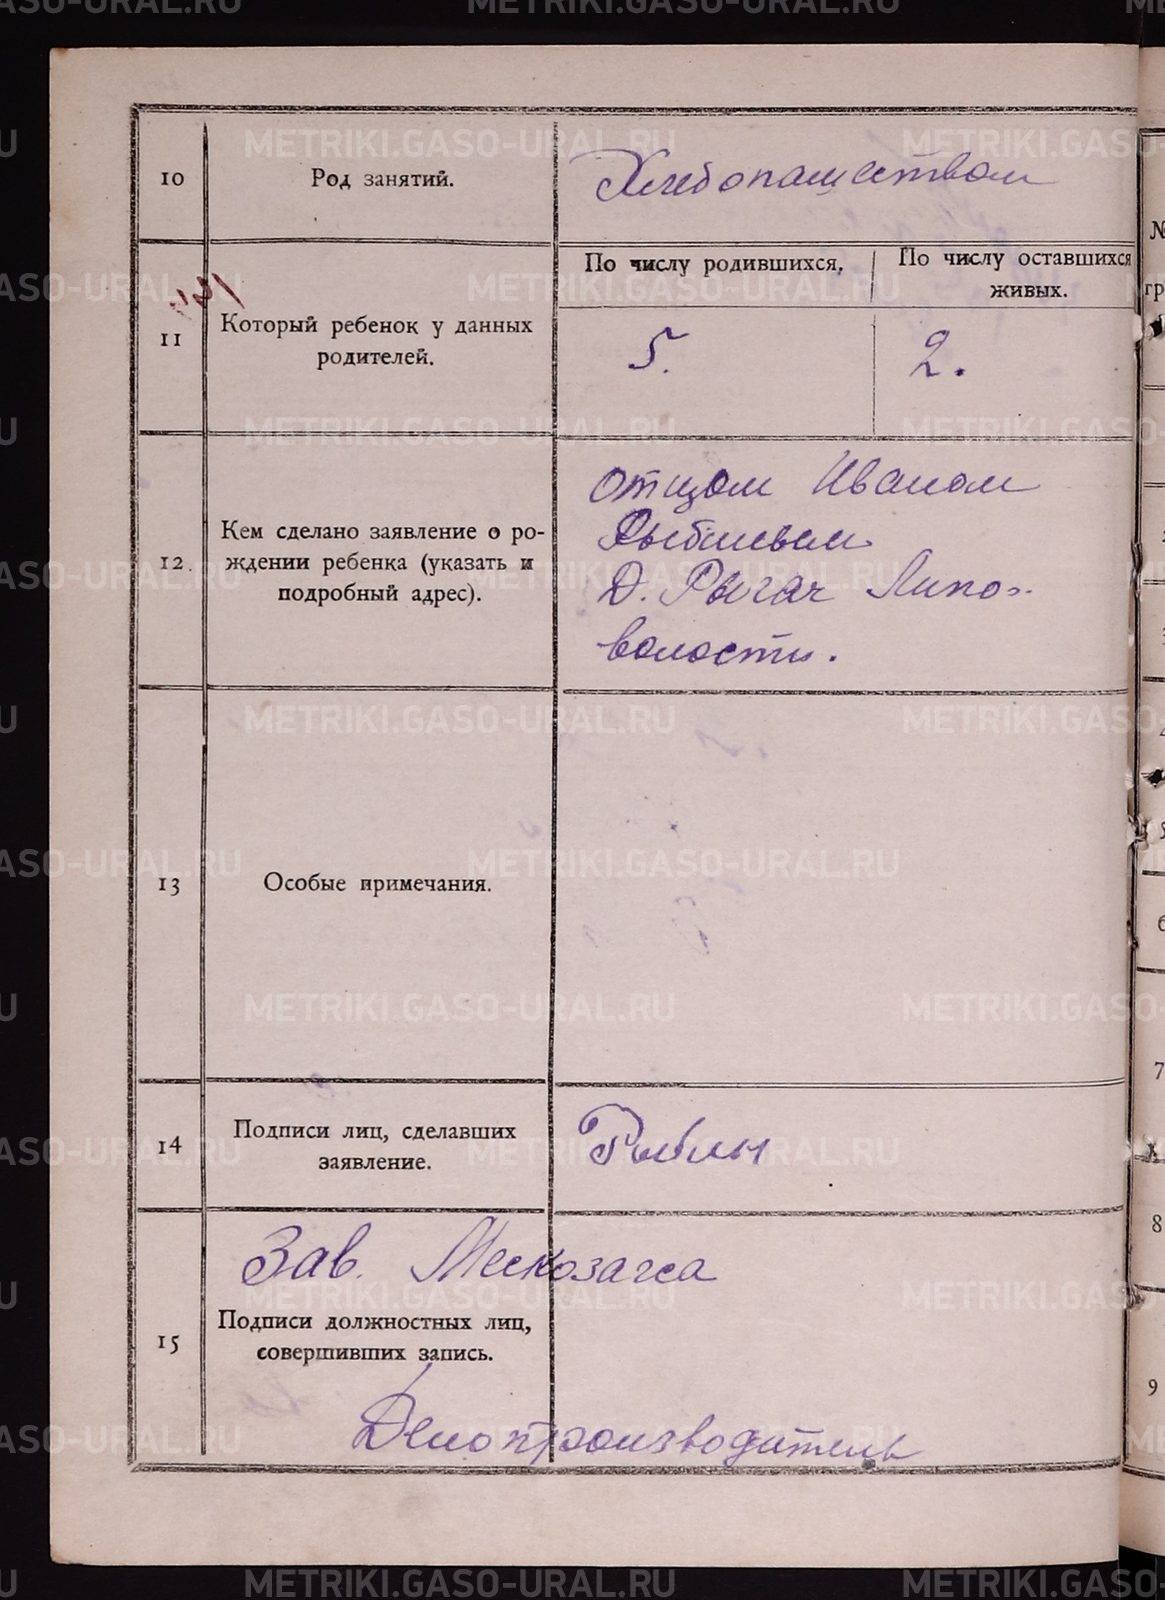 10
Род занятий.
Хлебопашеством
11
Который ребенок у данных
родителей.
По числу родившихся.
По числу оставшихся
живых.
5.
2.
12.
Кем сделано заявление о ро-
ждении ребенка (указать и
подробный адрес).
отцом Иваном
Д. Рычач Липо-
волости.
13
Особые примечания.
14
Подписи лиц, сделавших
заявление.
15
Зав.
Подписи должностных лиц,
совершивших запись.
Делопроизводитель
№
гр
6
7
8
9
METRIKI.GASO-URAL.RU